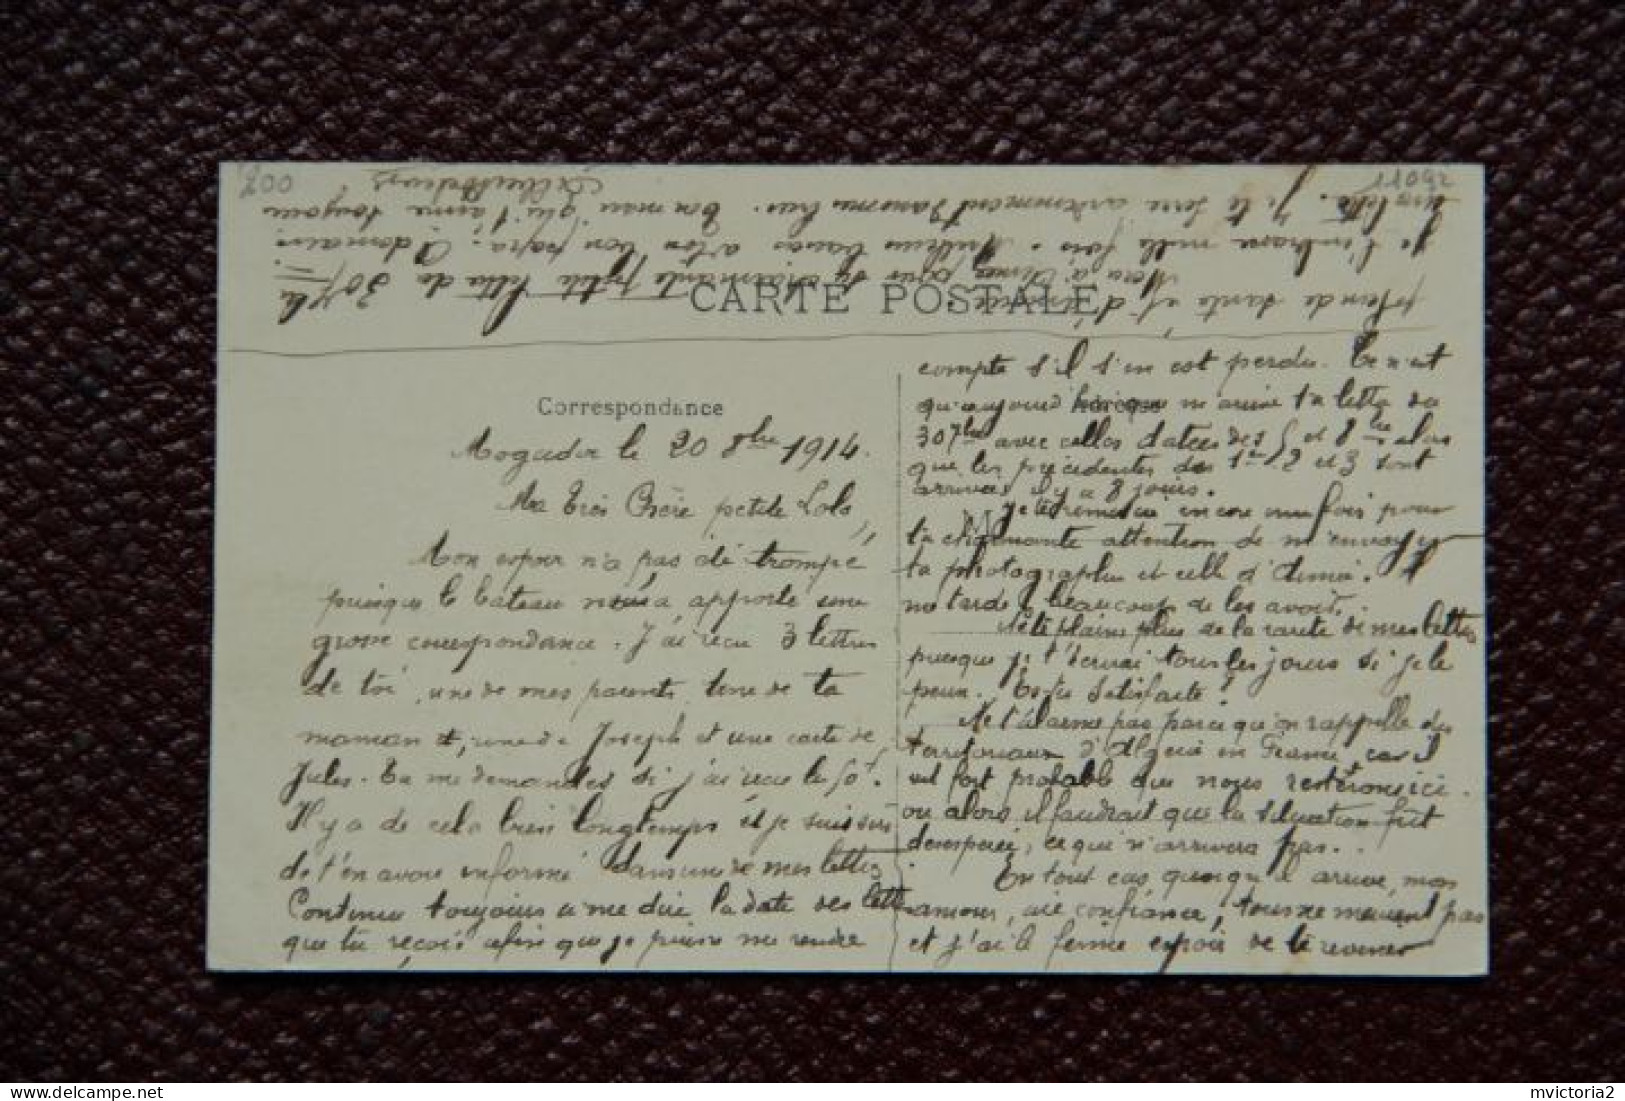 200
11092
CARTE POSTALE
Correspondance
Mogador le 20 8bre 1914.
Ma très Chère petite Lola,
Mon espoir n'a pas été trompé
puisque le bateau nous a apporté une
grosse correspondance. J'ai reçu 3 lettres
de toi, une de mes parents, une de ta
maman et, une de Joseph et une carte de
Jules. Tu me demandes si j'ai reçu les 50f.
Il y a de cela bien longtemps et je suis sûr
de t'en avoir informé dans une de mes lettres
Continue toujours à me dire la date des lettres
que tu reçois afin que je puisse me rendre
compte s'il s'en est perdu. Ce n'est
qu'aujourd'hui que m'arrive ta lettre du
30 7bre avec celles datées des 5 et 8 bre alors
que les précédentes des 1er 2 et 3 sont
arrivées il y a 8 jours.
Je te remercie encore une fois pour
ta charmante attention de m'envoyer
ta photographie et celle d'Aimé. Il
me tarde beaucoup de les avoir.
Ne te plains plus de la rareté de mes lettres
puisque je t'écrirai tous les jours si je le
peux. Es-tu satisfaite?
Ne t'alarme pas parce qu'on rappelle des
territoriaux d'Algérie en France, car il
est fort probable que nous resterons ici
ou alors il faudrait que la situation fût
désespérée, ce qui n'arrivera pas..
En tout cas quoiqu'il arrive, mon
amour, aie confiance, tous ne meurent pas
et j'ai le ferme espoir de te revenir
plein de santé et d'amour.
Merci à Aimée pour sa charmante petite lettre du 30 7bre
Je t'embrasse mille fois. Meilleurs baisers à ton bon papa. A demain
une lettre. Je te serre ardemment dans mes bras. Ton mari qui t'aime toujours
mvictoria2